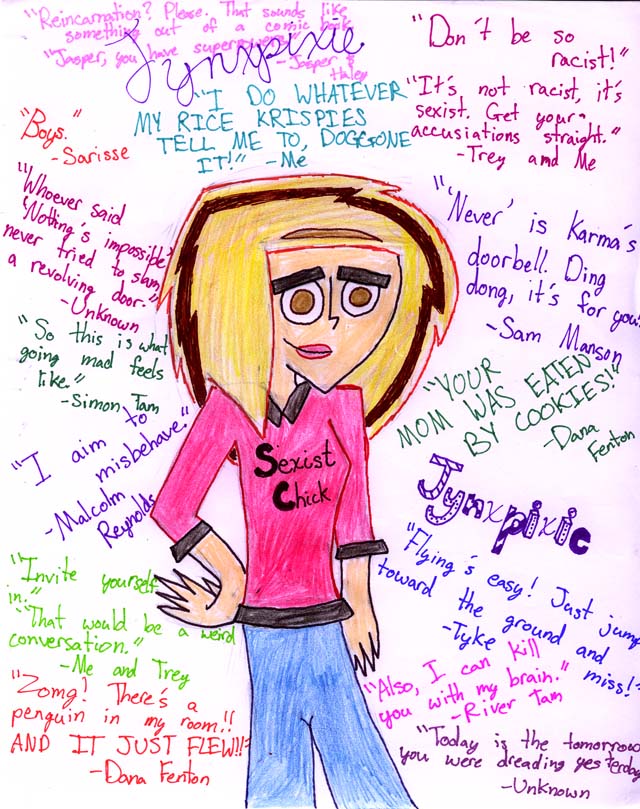 "Reincarnation? Please. That sounds like
something out of a comic book.
"Jasper, you have superpowers."
-Jasper &
Haley
Jynxpixie
"I DO WHATEVER
MY RICE KRISPIES
TELL ME TO, DOGGONE
IT!" -Me
"Don't be so
racist!"
"It's not racist, it's
sexist. Get your
accusiations straight."
-Trey and Me
"Boys."
-Sarisse
"Whoever said
'Nothing's impossible'
never tried to slam
a revolving door."
-Unknown
"'Never' is Karma's
doorbell. Ding
dong, it's for you."
-Sam Manson
"So this is what
going mad feels
like."
-Simon Tam
"YOUR
MOM WAS EATEN
BY COOKIES!"
-Dana
Fenton
"I aim to
misbehave."
-Malcolm
Reynolds
Sexist
Chick
Jynxpixie
"Flying's easy! Just jump
toward the ground and
miss!"
-Tyke
"Invite yourself
in."
"That would be a weird
conversation."
-Me and Trey
"Also, I can kill
you with my brain."
-River Tam
"Zomg! There's a
penguin in my room!!
AND IT JUST FLEW!!"
-Dana Fenton
"Today is the tomorrow
you were dreading yesterday
-Unknown